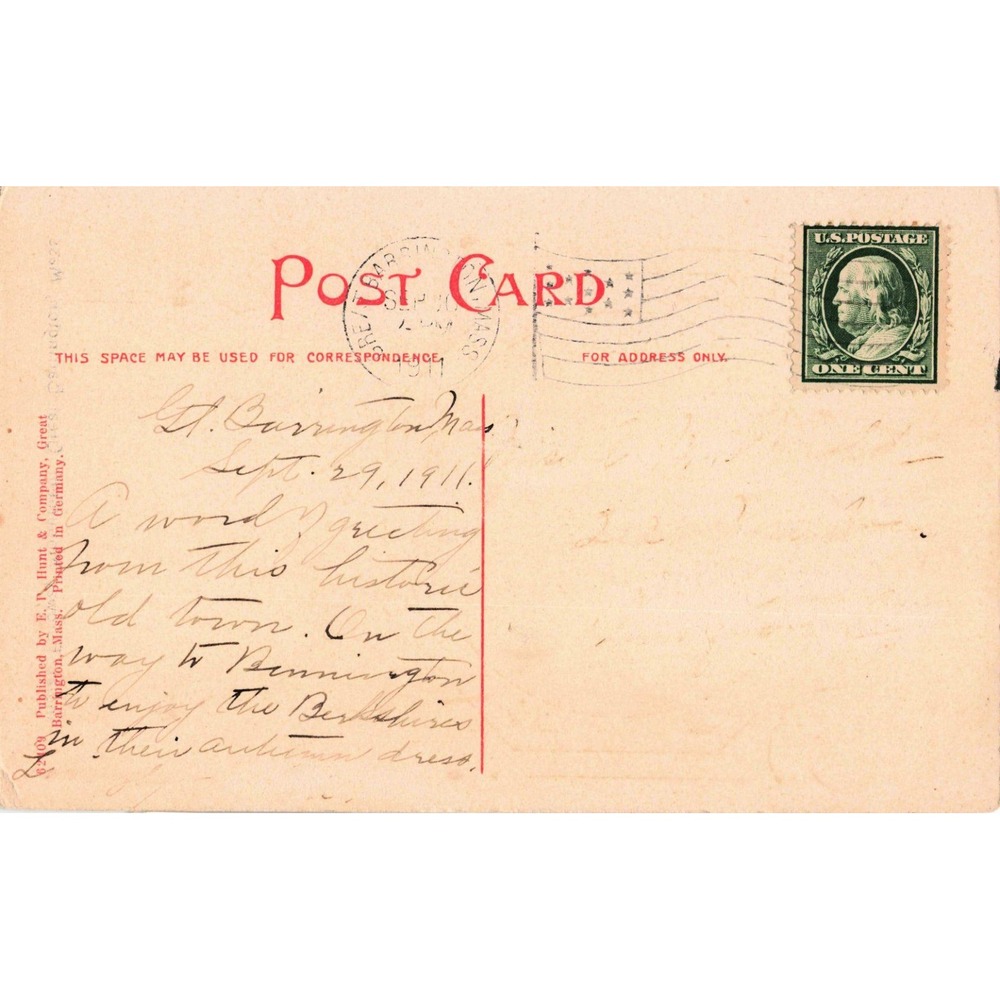 POST CARD
THIS SPACE MAY BE USED FOR CORRESPONDENCE
FOR ADDRESS ONLY.
GREAT BARRINGTON, MASS
SEP
1911
U.S. POSTAGE
ONE CENT
Gt. Barrington, Mass
Sept. 29, 1911.
A word of greeting
from this historic
old town. On the
way to Bennington
to enjoy the Berkshires
in their autumn dress.
L
62109 Published by E. P. Hunt & Company, Great
Barrington, Mass. Printed in Germany.